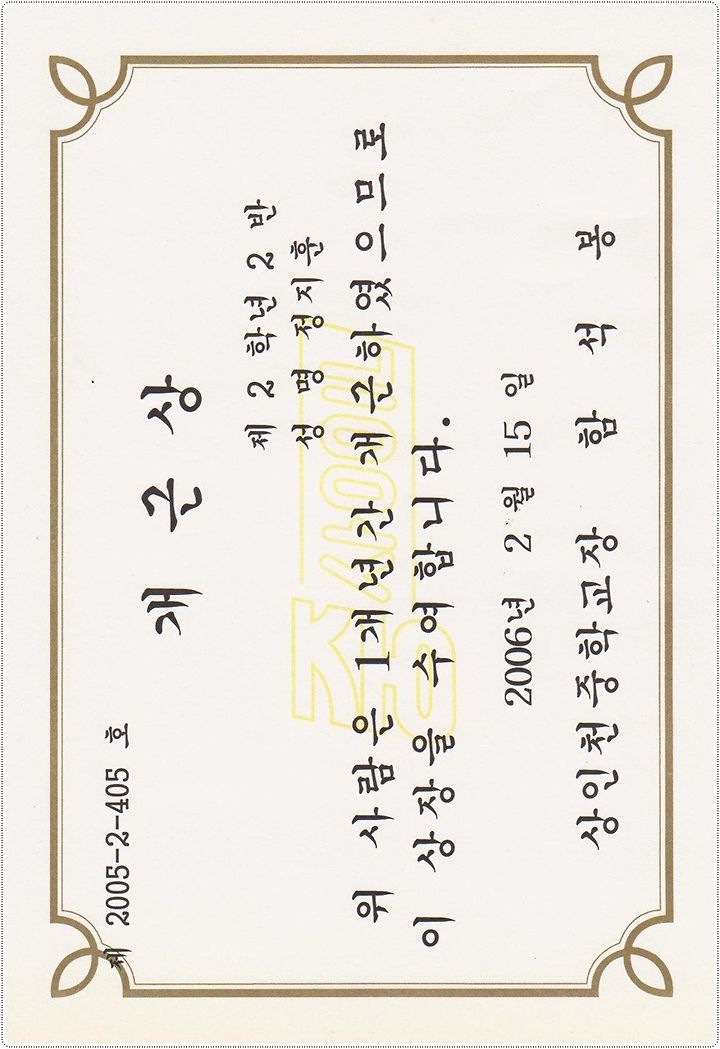 제 2005-2-405 호
개 근 상
제 2 학년 2 반
성 명 정지훈
위 사람은 1개년간 개근하였으므로
이 상장을 수여합니다.
2006년 2 월 15 일
상인천중학교장 함 석 몽